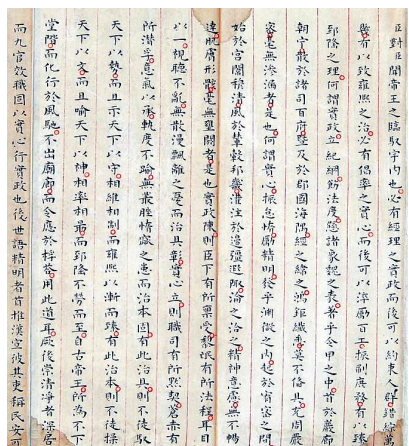 臣對臣聞之臨馭宇內也必有經理之實政而後可以約束人群錯綜萬
機有以致雍熙之治必有倡率之實心而後可以淬勵百工振刷庶務有以臻
郅隆之理何謂實政立紀綱飭法度懸諸象魏之表著乎令甲之中首於巖廊
朝宁散於諸司百府暨及於郡國海隅經之緯之鴻鉅纖悉莫不備具充周嚴
密毫無滲漏者是也何謂實心振怠惰勵精明發乎淵微之內起於宥密之間
始於宮闈穆清風於輦轂邦畿灌注於邊疆遐陬淪之洽之精神意慮無不暢
達肌膚形骸毫無壅閼者是也實政陳則臣下有所稟受黎氓有所法程耳目
以一視聽不亂無散漫飄離之憂而治具彰實心立則職司有所默契蒼赤有
所潛孚意氣以承軌度不踰無叢脞惰窳之患而治本固有此治具則不徒馭
天下以勢而且示天下以守相維相制而雍熙以漸而臻有此治本則不徒操
天下以文而且喻天下以神相率相勖而郅隆不勞而至自古帝王所為不下
堂階而化行於風馳不出廟廊而令應於桴答用此道耳厥後崇清淨者深居
而九官效職固以實心行實政也後世語精明者首推漢宣彼其吏稱民安可